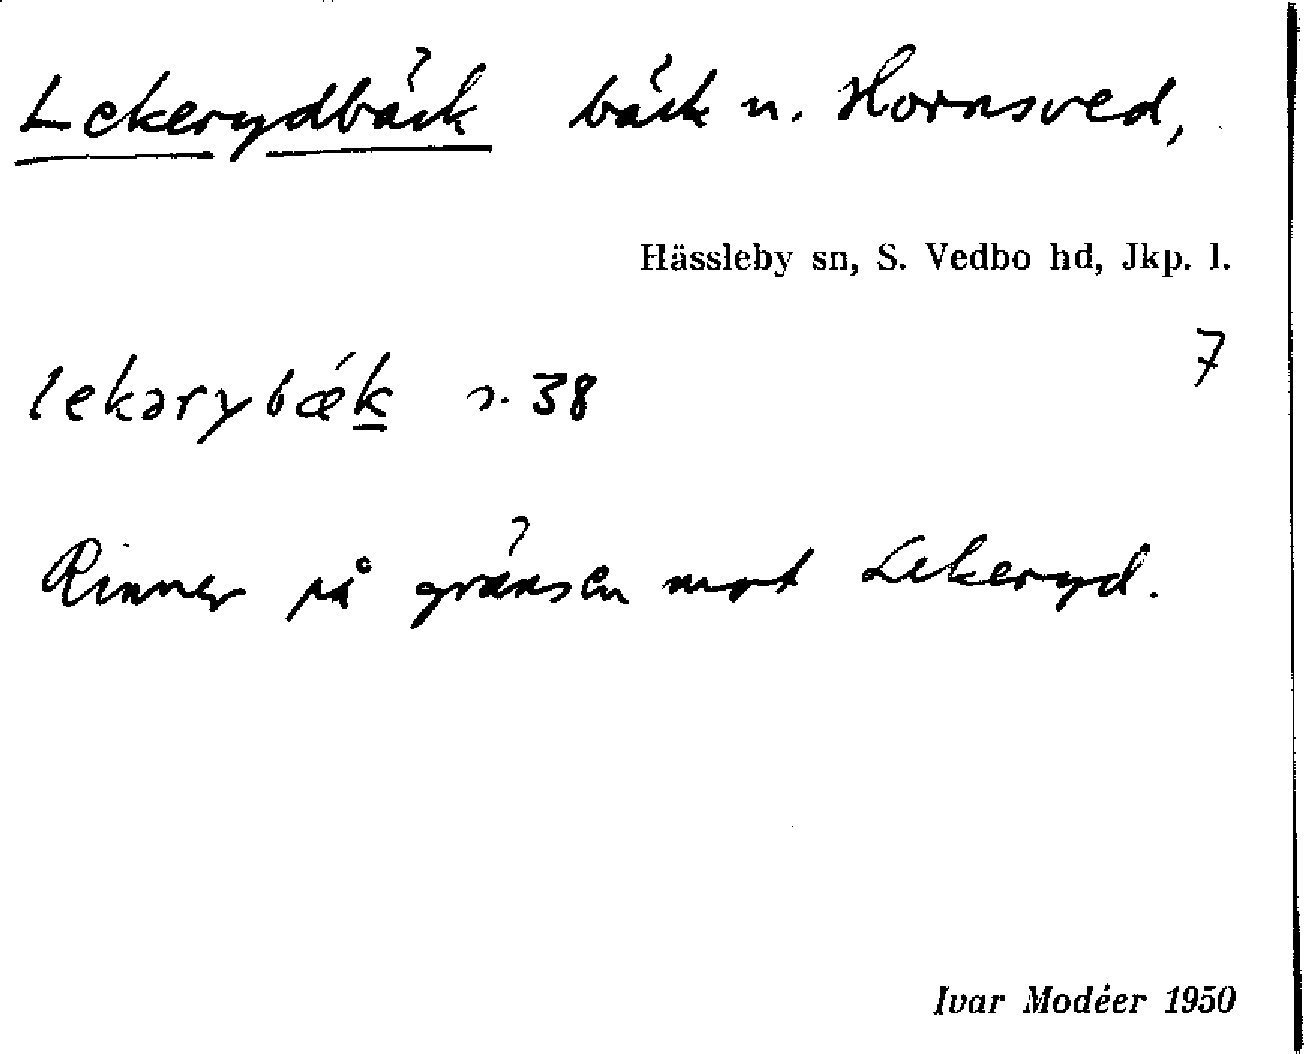 Lekerydbäck bäck u. Hornsved,
Hässleby sn, S. Vedbo hd, Jkp. l.
7
lekərybǽk s. 38
Rinner på gränsen mot Lekeryd.
Ivar Modéer 1950